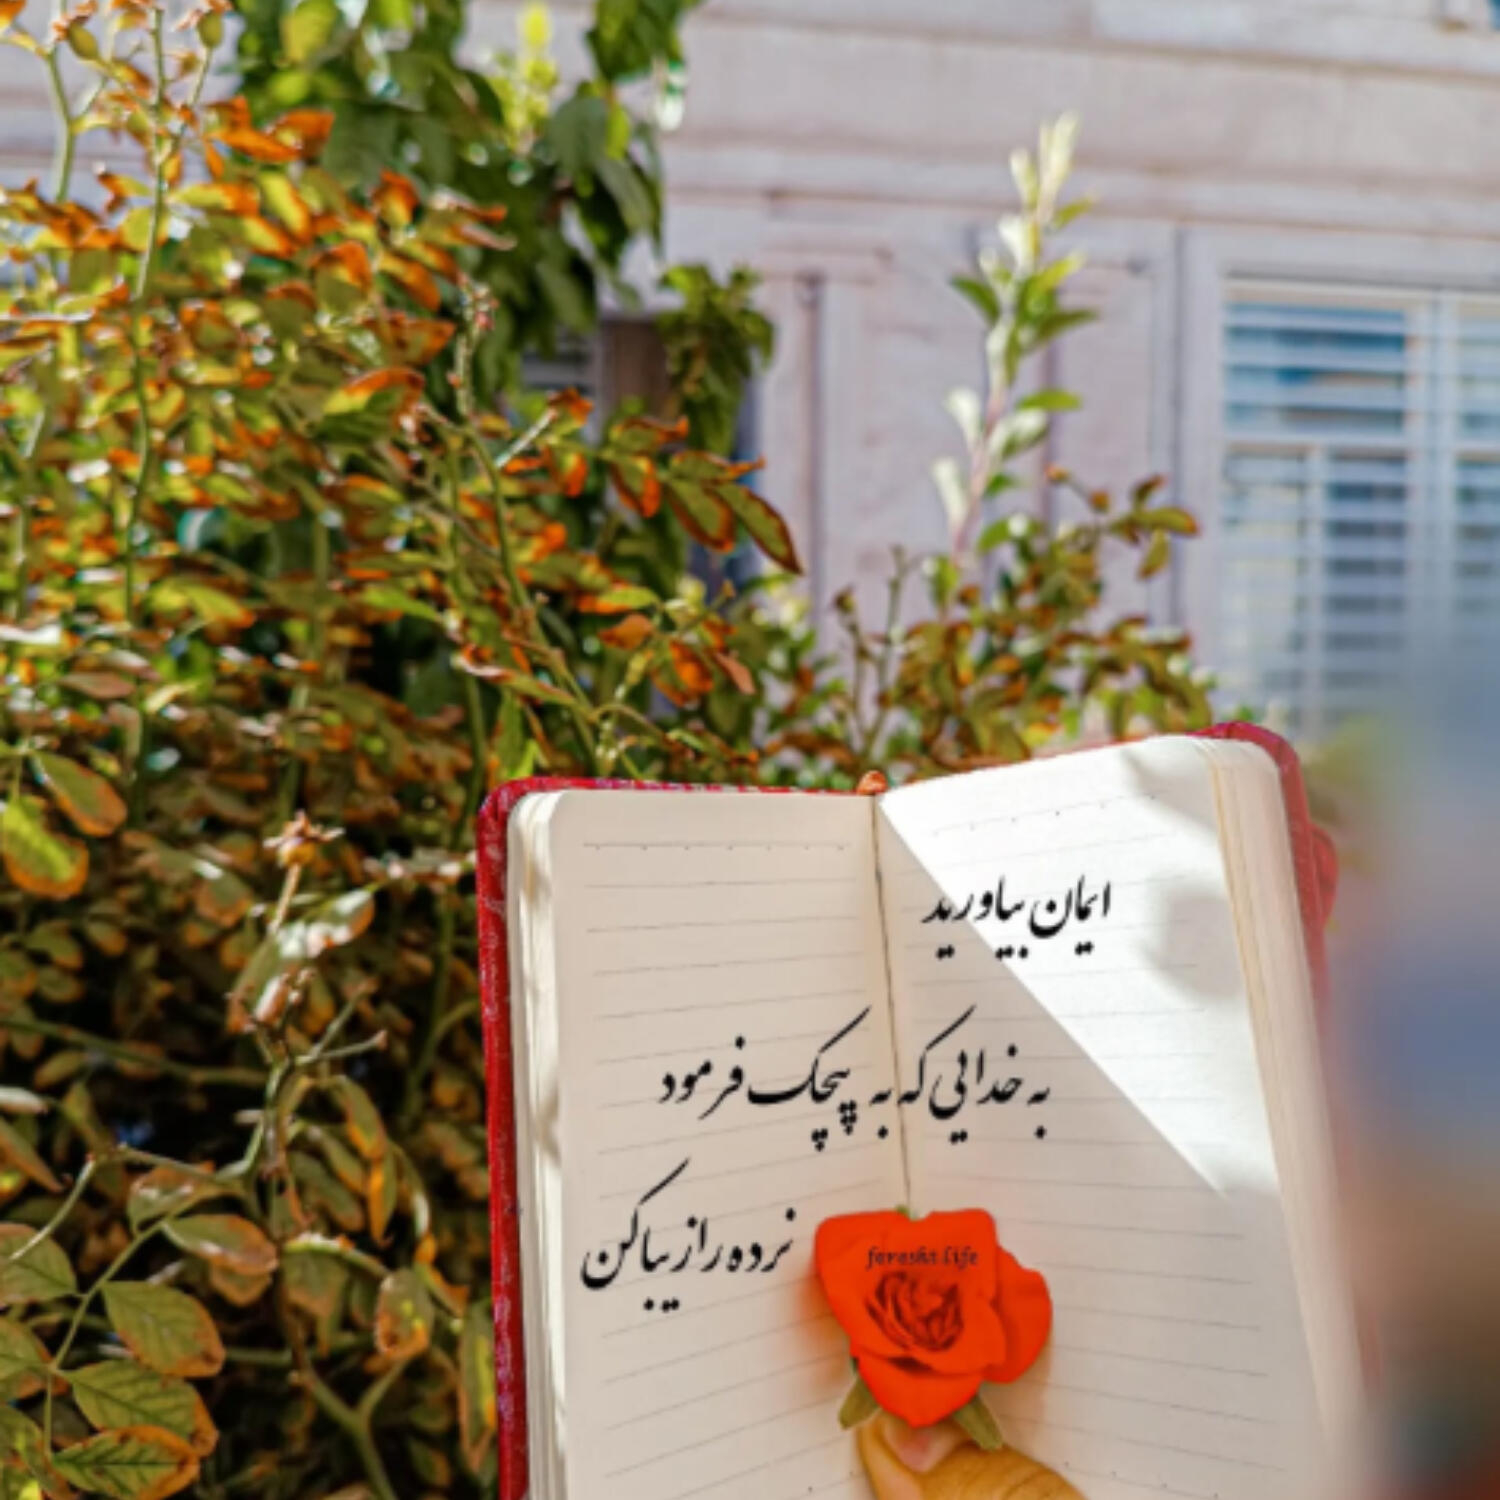 ایمان بیاورید
به خدایی که به پیچک فرمود
نرده را زیبا کن
forosht life